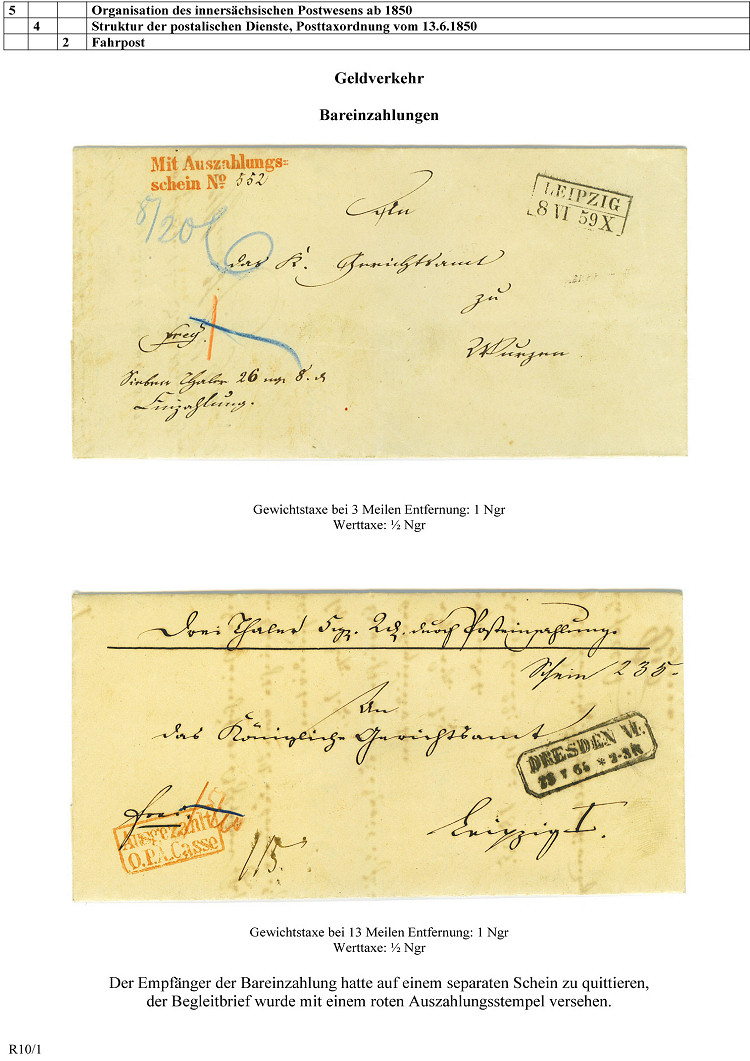 5 Organisation des innersächsischen Postwesens ab 1850
4 Struktur der postalischen Dienste, Posttaxordnung vom 13.6.1850
2 Fahrpost
Geldverkehr
Bareinzahlungen
Mit Auszahlungs=
schein No 552
LEIPZIG
8 VI 59 X
8/20
An
das K. Gerichtsamt
zu
Wurzen
frey.
Sieben Thaler 26 ngr 8 d
Einzahlung.
Gewichtstaxe bei 3 Meilen Entfernung: 1 Ngr
Werttaxe: ½ Ngr
Drei Thaler 5 gr. 2 d. durch Posteinzahlung.
Schein 235.
An
das Königliche Gerichtsamt
DRESDEN VI.
Leipzig I.
frei.
Ausgezahlt
O.P.A.Casse
115.
Gewichtstaxe bei 13 Meilen Entfernung: 1 Ngr
Werttaxe: ½ Ngr
Der Empfänger der Bareinzahlung hatte auf einem separaten Schein zu quittieren,
der Begleitbrief wurde mit einem roten Auszahlungsstempel versehen.
R10/1